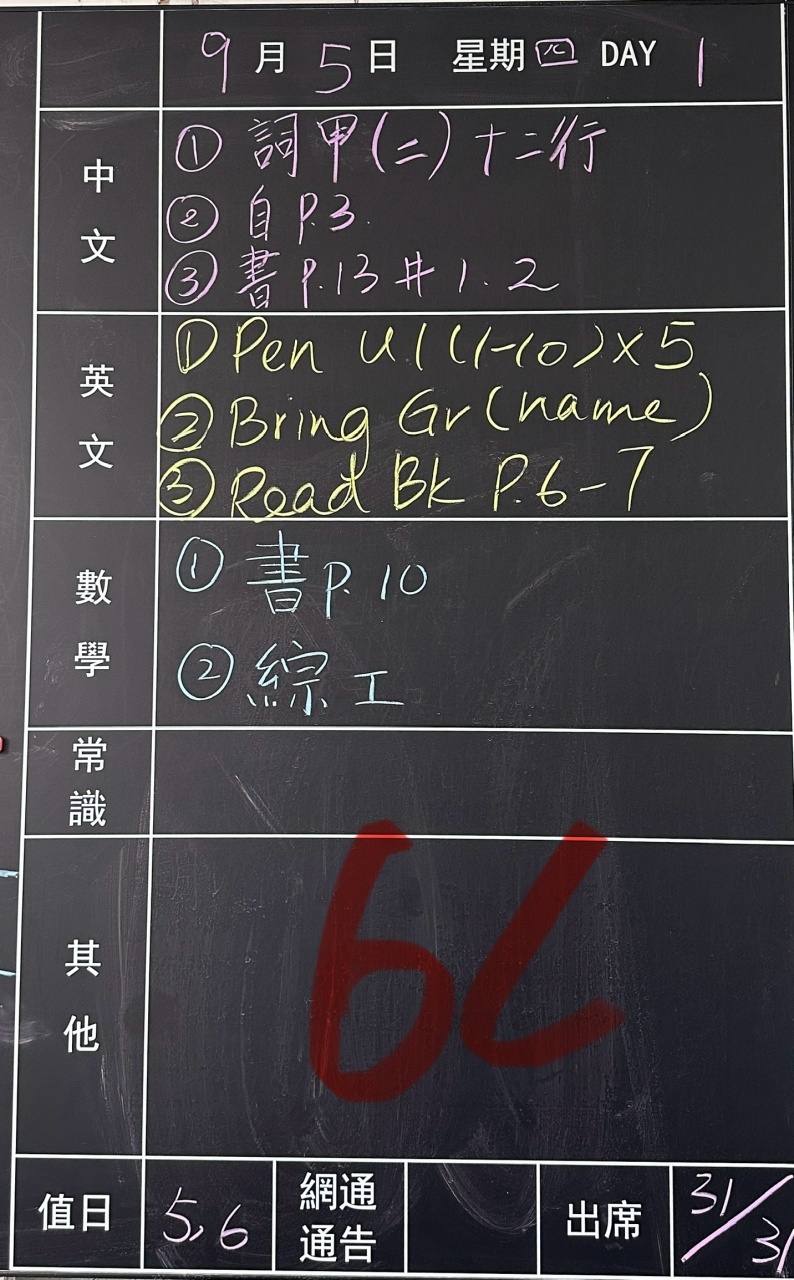 9月5日 星期四 DAY 1
中文
① 詞甲(二)十二行
② 自P.3.
③ 書P.13 # 1.2
英文
① Pen U1(1-10)×5
② Bring Gr(name)
③ Read Bk P.6-7
數學
① 書P.10
② 綜工
常識
其他
6C
值日 5,6 網通通告 出席 31/31